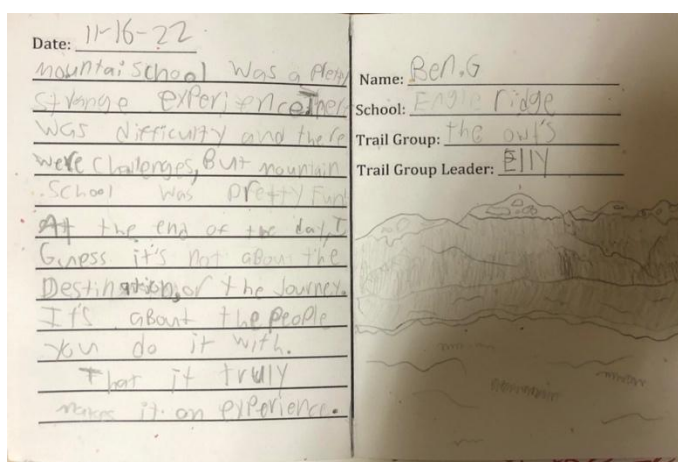 Date: 11-16-22
mountai School was a Pletty
Strange experience There
was difficulty and there
were Challenges, But mountain
School was pretty Fun!
At the end of the day, I
Guess it's not abou the
Destination, or the Journey.
It's about the people
you do it with.
That it truly
makes it an experience.
Name: Ben.G
School: Eagle ridge
Trail Group: the owl's
Trail Group Leader: Elly